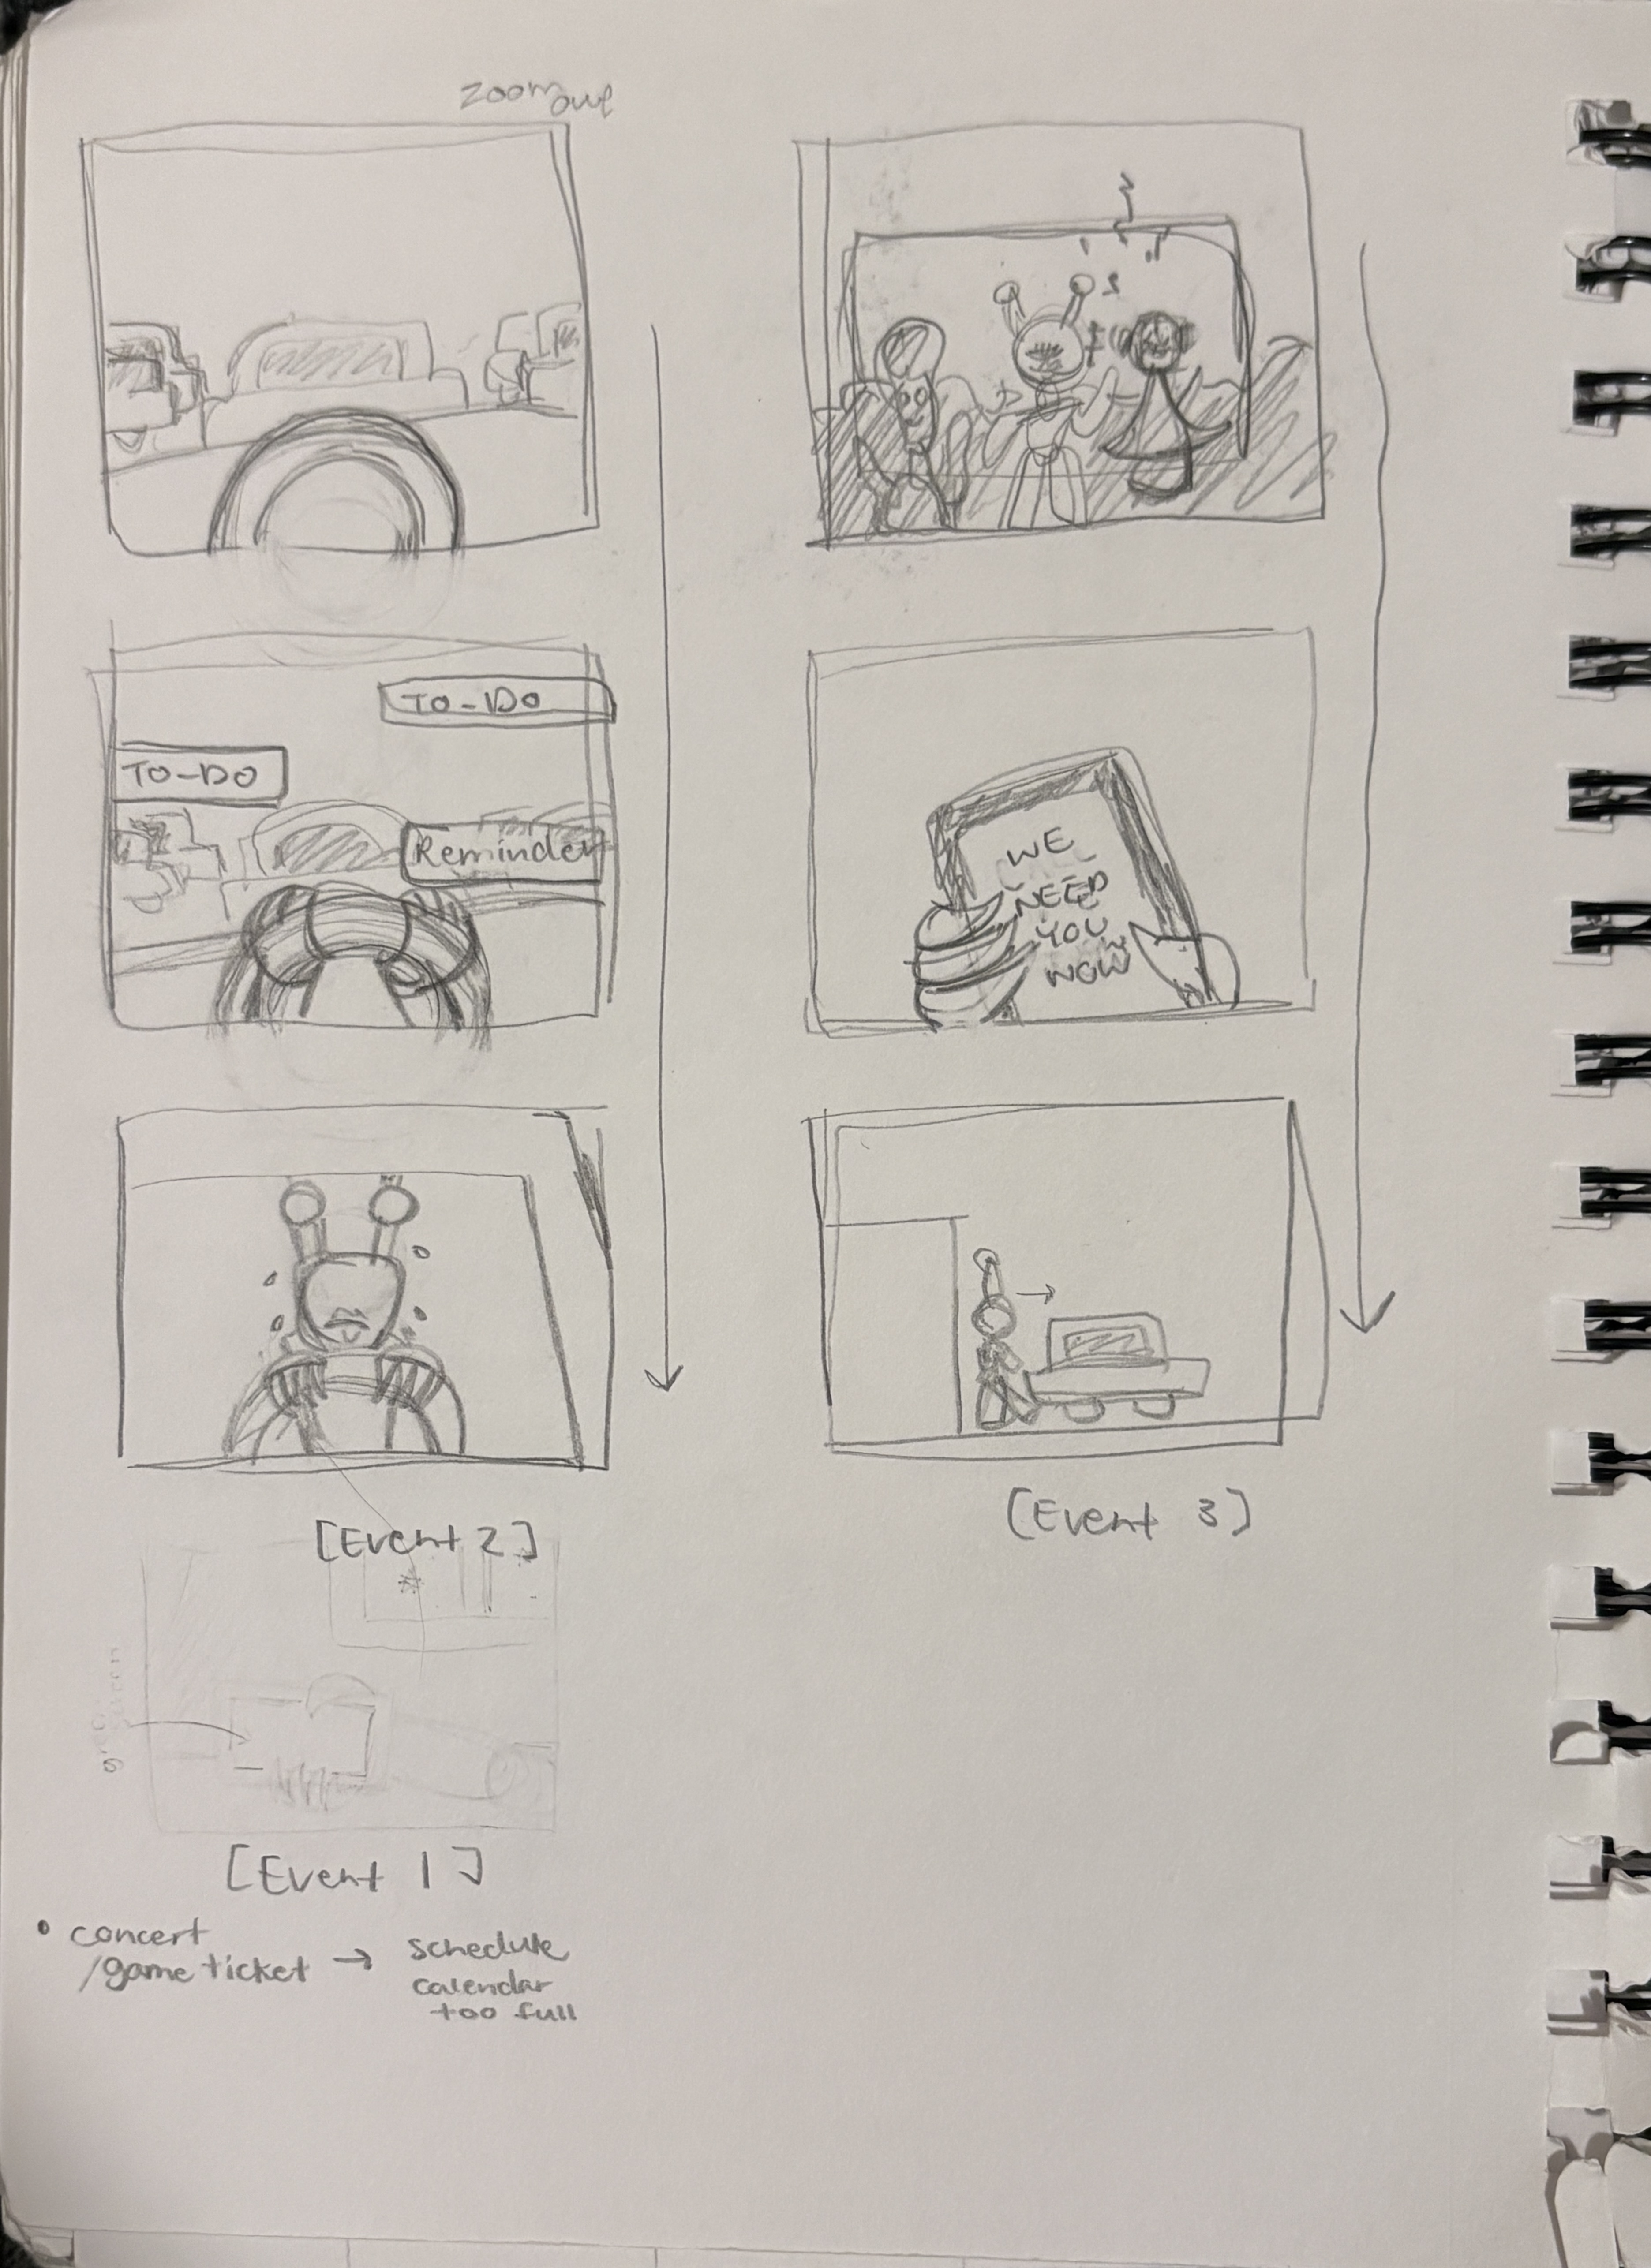 zoom out
TO-DO
TO-DO
Reminder
[Event 2]
[Event 1]
• concert
/game ticket → schedule
calendar
too full
WE
NEED
YOU
NOW
[Event 3]